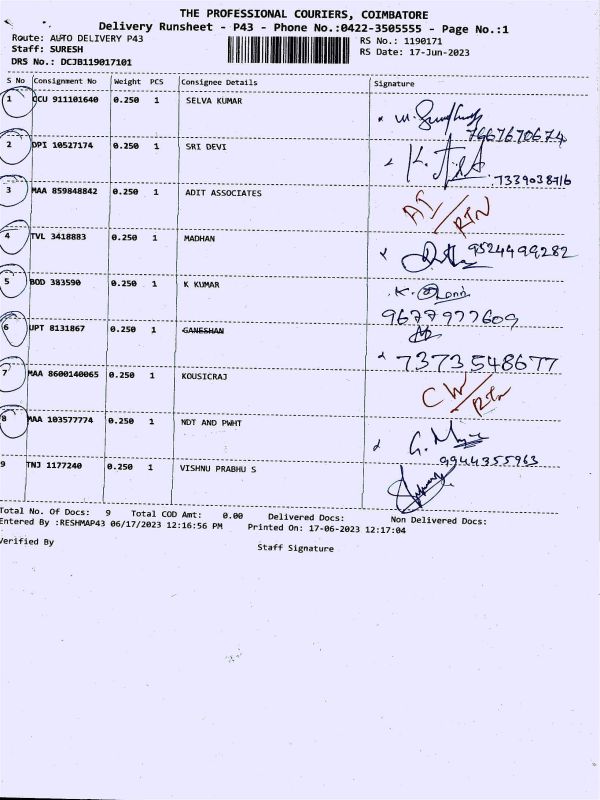 THE PROFESSIONAL COURIERS, COIMBATORE
Delivery Runsheet - P43 - Phone No.:0422-3505555 - Page No.:1
Route: AUTO DELIVERY P43 RS No.: 1190171
Staff: SURESH RS Date: 17-Jun-2023
DRS No.: DCJB119017101
S No Consignment No Weight PCS Consignee Details Signature
1 CCU 911101640 0.250 1 SELVA KUMAR
7667670674
2 DPI 10527174 0.250 1 SRI DEVI
7339038716
3 MAA 859848842 0.250 1 ADIT ASSOCIATES
RTN
4 TVL 3418883 0.250 1 MADHAN 9524499282
5 BOD 383590 0.250 1 K KUMAR K.
9677977609
6 UPT 8131867 0.250 1 GANESHAN
7373548677
7 MAA 8600140065 0.250 1 KOUSICRAJ CW/RTN
8 MAA 103577774 0.250 1 NDT AND PWHT G.
9944355963
9 TNJ 1177240 0.250 1 VISHNU PRABHU S
Total No. Of Docs: 9 Total COD Amt: 0.00 Delivered Docs: Non Delivered Docs:
Entered By :RESHMAP43 06/17/2023 12:16:56 PM Printed On: 17-06-2023 12:17:04
Verified By Staff Signature